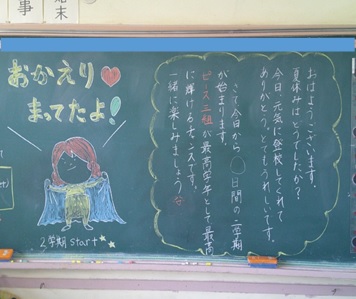 事
始末
おかえり♥
まってたよ!
2学期 start
おはようございます。
夏休みはどうでしたか?
今日、元気に登校してくれて
ありがとう。とてもうれしいです。
さて今日から〇日間の二学期
が始まります。
ピース三組が最高学年として最高
に輝けるチャンスです。
一緒に楽しみましょう